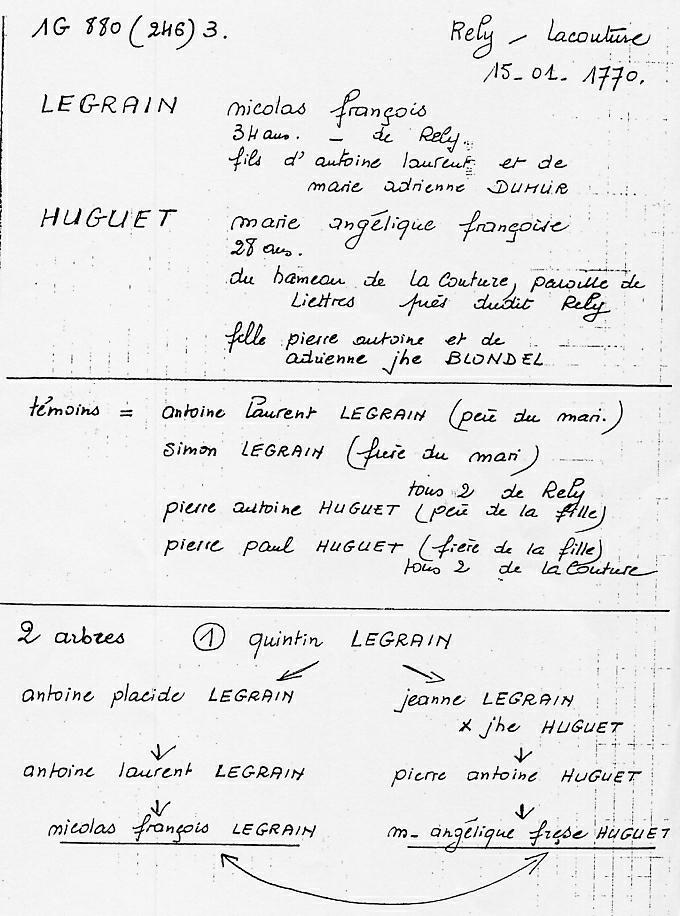 1G 880 (246) 3.
Rely - Lacouture
15-01-1770.
LEGRAIN nicolas françois
34 ans. - de Rely.
fils d'antoine laurent et de
marie adrienne DUHUR
HUGUET marie angélique françoise
28 ans.
du hameau de la Couture, paroisse de
Liettres près dudit Rely
fille pierre antoine et de
adrienne jhe BLONDEL
témoins = antoine Laurent LEGRAIN (père du mari.)
simon LEGRAIN (frère du mari)
tous 2 de Rely
pierre antoine HUGUET (père de la fille)
pierre paul HUGUET (frère de la fille)
tous 2 de la Couture
2 arbres ① quintin LEGRAIN
antoine placide LEGRAIN jeanne LEGRAIN
x jhe HUGUET
antoine laurent LEGRAIN pierre antoine HUGUET
nicolas françois LEGRAIN m- angélique frçse HUGUET